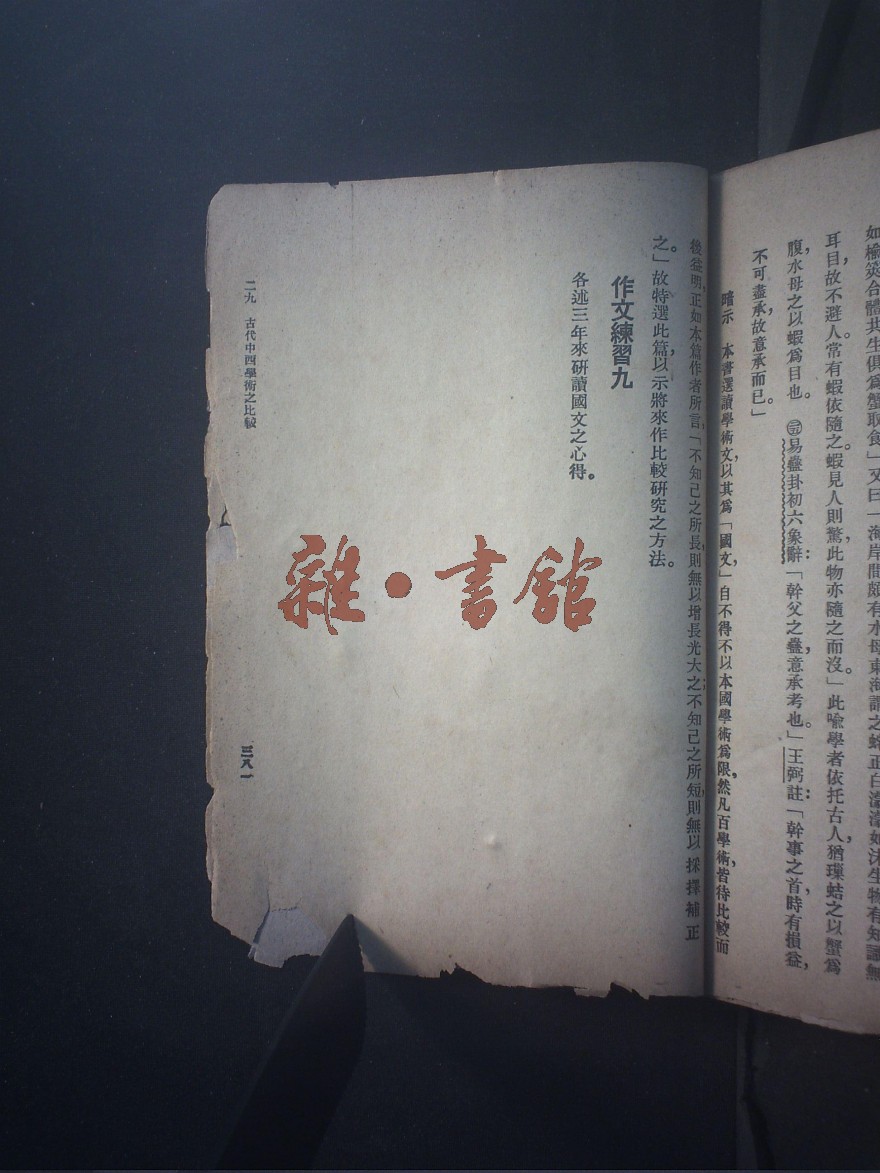 如榆莢合體共生俱爲蟹取食」又曰「海岸間頗有水母東海謂之蛇正白濛濛如沫生物有知識無
耳目，故不避人。常有蝦依隨之。蝦見人則驚，此物亦隨之而沒。」此喩學者依托古人，猶璅蛣之以蟹爲
腹，水母之以蝦爲目也。 ㊂易蠱卦初六象辭：「幹父之蠱，意承考也。」王弼註：「幹事之首，時有損益，
不可盡承，故意承而已。」
暗示 本書選讀學術文，以其爲「國文，」自不得不以本國學術爲限。然凡百學術，皆待比較而
後益明，正如本篇作者所言，「不知己之所長，則無以增長光大之；不知己之所短，則無以採擇補正
之。」故特選此篇，以示將來作比較硏究之方法。
作文練習九
各述三年來硏讀國文之心得。
二九 古代中西學術之比較
三八一
雜·書館